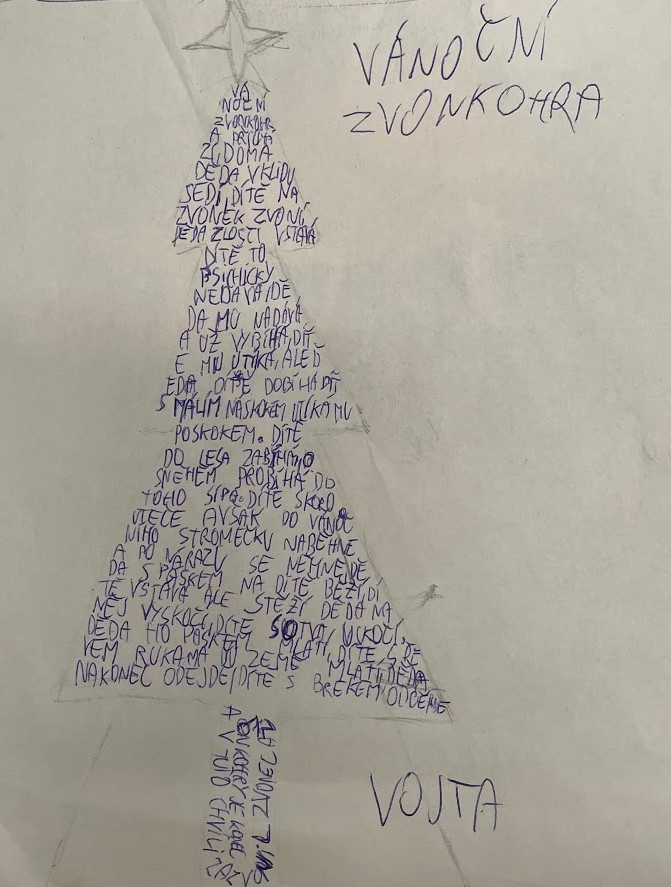 VÁNOČNÍ
ZVONKOHRA
VÁ
NOČNÍ
ZVONKOHR
A
ZI DOMA
DĚDA V KLIDU
SEDÍ, DÍTĚ NA
ZVONEK ZVONÍ,
DĚDA ZLOSTÍ VSTÁVÁ
DÍTĚ TO
PSICHICKY
NEDÁVÁ, DĚ
DA MU NADÁVÁ
A UŽ VYBÍHÁ, DÍT
Ě MU UTÍKÁ, ALE D
ĚDA DÍTĚ DOBÍHÁ DÍT
S MALÍM NÁSKOKEM UTÍKÁ MU
POSKOKEM. DÍTĚ
DO LESA ZABÍHÁ, O
SNĚHEM PROBÍHÁ DO
TOHO SÍPÁ. DÍTĚ SKORO
UTEČE AVŠAK DO VÁNOČ
NÍHO STROMEČKU NABĚHNE
A PO NÁRAZU SE NEHNE, DĚ
DA S PÁSKEM NA DÍTĚ BĚŽÍ, DÍ
TĚ VSTÁVÁ ALE STĚŽÍ DĚDA NA
NĚJ VYSKOČÍ, DÍTĚ SOTVA USKOČÍ,
DĚDA HO PÁSKEM MLÁTÍ DÍTĚ ŘE
VEM RUKAMA O ZEMĚ MLÁTÍ, DĚDA
NAKONEC ODEJDE, DÍTĚ S BREKEM
A V TUTO CHVÍLI ZAZ
VONKOHRY JE KONEC
VOJTA